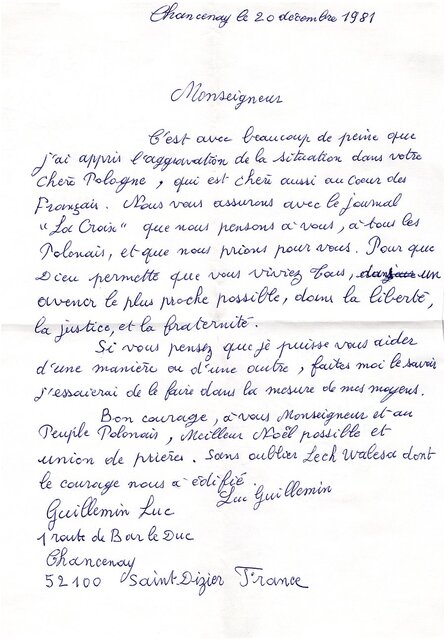 Chancenay le 20 décembre 1981
Monseigneur
C'est avec beaucoup de peine que
j'ai appris l'aggravation de la situation dans votre
chère Pologne, qui est chère aussi au coeur des
Français. Nous vous assurons avec le journal
"La Croix" que nous pensons à vous, à tous les
Polonais, et que nous prions pour vous. Pour que
Dieu permette que vous viviez tous, un
avenir le plus proche possible, dans la liberté,
la justice, et la fraternité.
Si vous pensez que je puisse vous aider
d'une manière ou d'une autre, faites moi le savoir
j'essaierai de le faire dans la mesure de mes moyens.
Bon courage, à vous Monseigneur et au
Peuple Polonais, Meilleur Noël possible et
union de prières. Sans oublier Lech Walesa dont
le courage nous a édifié.
Luc Guillemin
Guillemin Luc
1 route de Bar le Duc
Chancenay
52100 Saint Dizier France